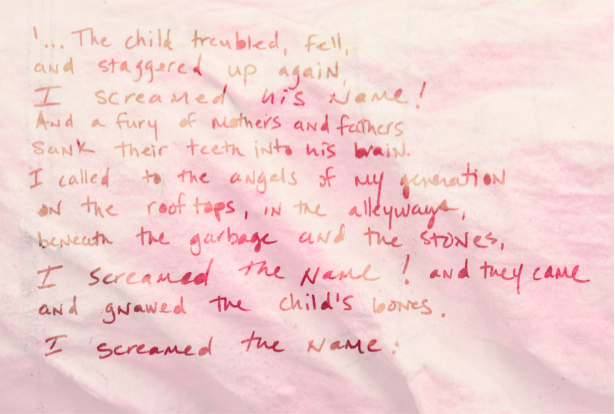 '... The child trembled, fell,
and staggered up again,
I screamed his Name!
And a fury of mothers and fathers
sank their teeth into his brain.
I called to the angels of my generation
on the rooftops, in the alleyways,
beneath the garbage and the stones,
I screamed the Name! and they came
and gnawed the child's bones.
I screamed the Name: